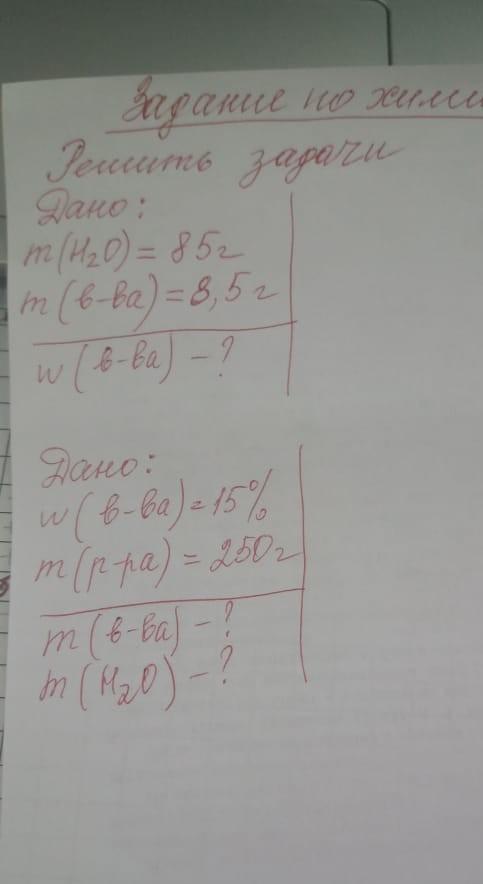 Задание по хими
Решить задачи
Дано:
m(H₂O) = 85г
m(в-ва) = 8,5г
w(в-ва) - ?
Дано:
w(в-ва) = 15%
m(р-ра) = 250г
m(в-ва) - ?
m(H₂O) - ?